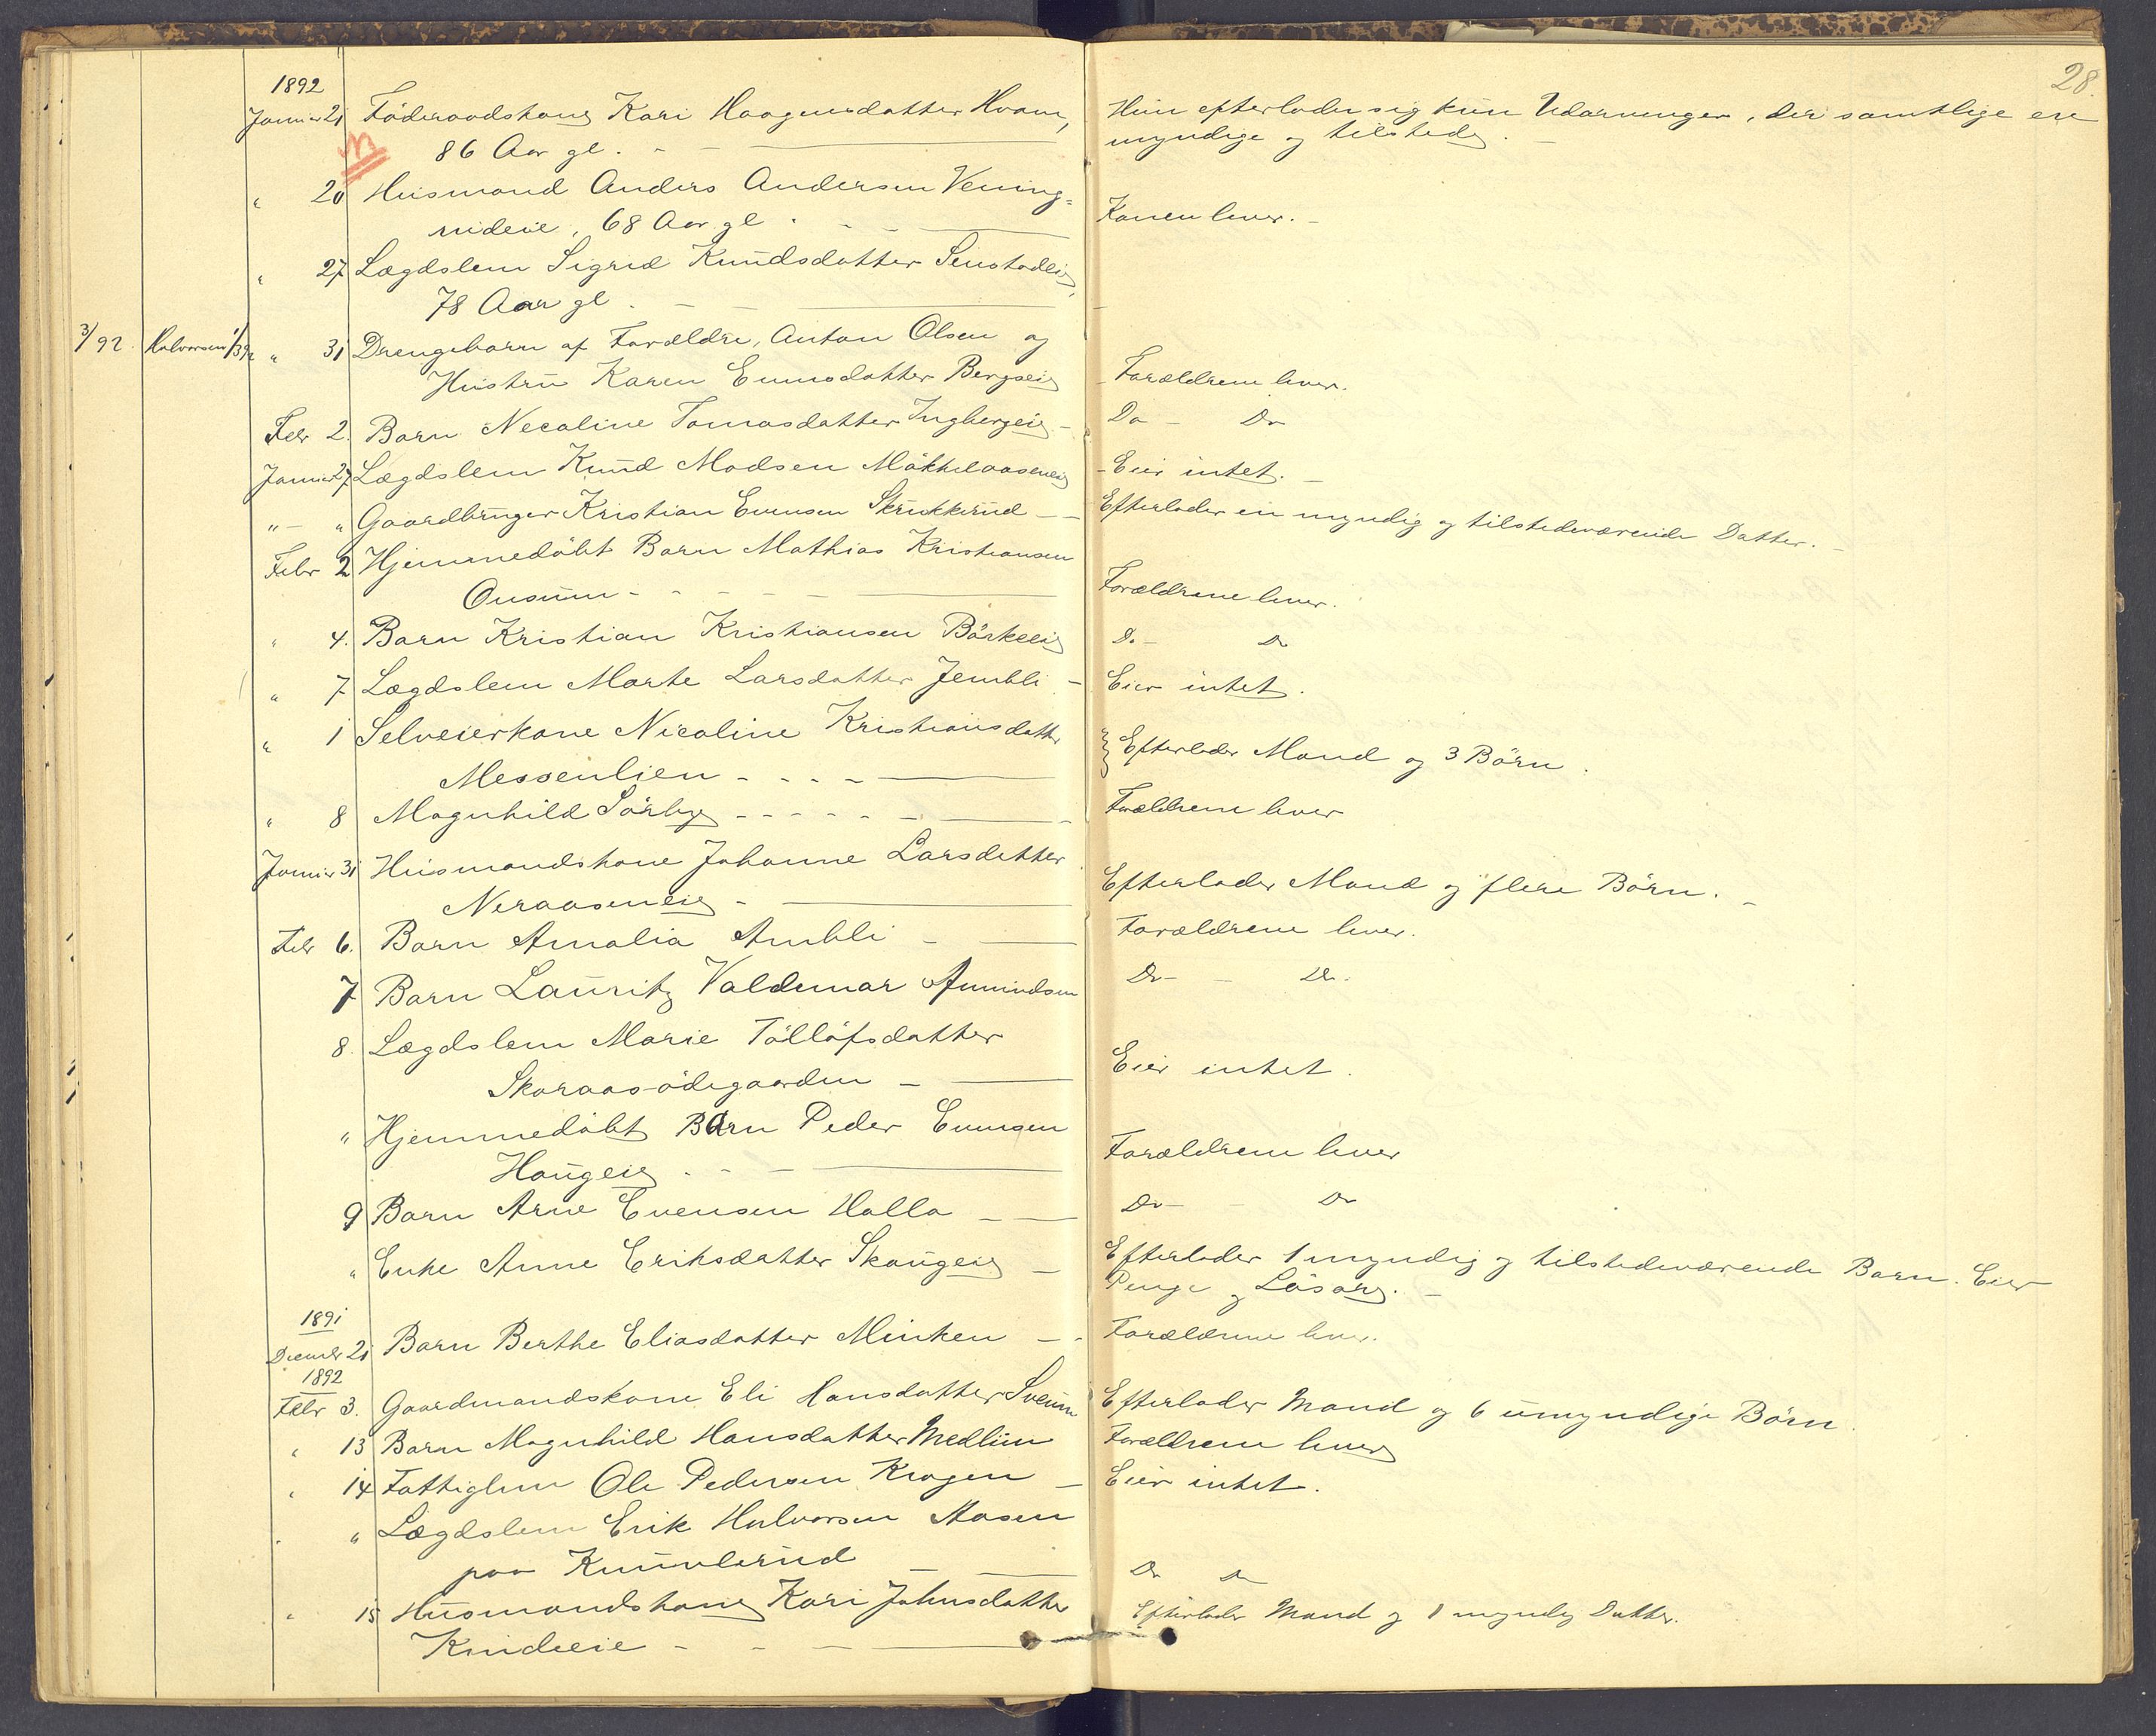 28.
1892
Januar 21 Föderaadskone Kari Haagensdatter Hvam,
86 Aar gl. - -
Hun efterlader sig kun Udarvinger, der samtlige ere
myndige og tilstede. -
" 20 Husmand Anders Andersen Vening=
rudeie, 68 Aar gl. - -
Konen lever. -
" 27 Lægdslem Sigrid Knudsdatter
78 Aar gl. - -
3/92. Halvorsen 1/3 92 " 31 Drengebarn af Forældre, Anton Olsen og
Hustru Karen Evensdatter Bergseie
Forældrene lever.
Febr 2. Barn Necoline Tomasdatter Ingbergeie -
Do - Do
Januar 27 Lægdslem Knud Madsen
- Eier intet. -
" - " Gaardbruger Kristian Evensen Skrukkerud - -
Efterlader en myndig og tilstedeværende Datter. -
Febr 2 Hjemmedöbt Barn Mathias Kristiansen
Onsum - - - - -
Forældrene lever.
" 4. Barn Kristian Kristiansen Börkeeie
Do - Do
" 7 Lægdslem Marte Larsdatter Jembli -
Eier intet.
" 1 Selveierkone Nicoline Kristiansdatter
Messenlien - - - -
Efterlader Mand og 3 Börn.
" 8 Magnhild Sörbye - - - - - -
Forældrene lever
Januar 31 Husmandskone Johanne Larsdatter
Neraaseneie -
Efterlader Mand og flere Börn. -
Febr 6. Barn Amalia Ambli -
Forældrene lever.
7 Barn Lauritz Valdemar Amundsen
Do - - Do.
8. Lægdslem Marie Tollöfsdatter
Skaraas-ödegaarden -
Eier intet.
" Hjemmedöbt Barn Peder Evensen
Haugeie - - -
Forældrene lever
9 Barn Arne Evensen Halla - -
Do - - Do
" Enke Anne Eriksdatter Skaugeie -
Efterlader 1 myndig og tilstedeværende Barn. Eier
Penge og Lösöre. -
1891
Decembr 21 Barn Berthe Eliasdatter Minken - -
Forældrene lever.
1892
Febr 3. Gaardmandskone Eli Hansdatter Sveum
Efterlader Mand og 6 umyndige Börn.
" 13 Barn Magnhild Hansdatter Medlien
Forældrene lever
" 14 Fattiglem Ole Pedersen Kragen -
Eier intet.
" " Lægdslem Erik Halvorsen Aasen
paa
Do Do
" 15 Husmandskone Kari Johnsdatter
Kindeeie - - -
Efterlader Mand og 1 myndig Datter.